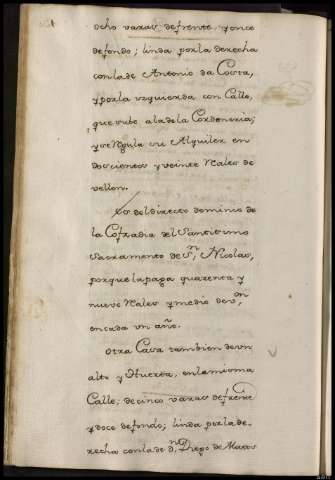 ocho varas defrente, y once
defondo; linda porla derecha
conlade Antonio da Costa,
y porla yzquierda con Calle,
que sube alade la Cordeneria;
y se Regula su Alquiler en
doscientos y veinte Reales de
vellon.
Es del directo dominio de
la Cofradia del Santissimo
Sacramento de Sn, Nicolas,
porque la paga quarenta y
nueve Reales y medio de von,
encada un año.
Otra Casa tambien de un
alto y Huerta, enla misma
Calle, de cinco varas de frente
y doce defondo; linda porlade-
recha conlade Dn Diego de